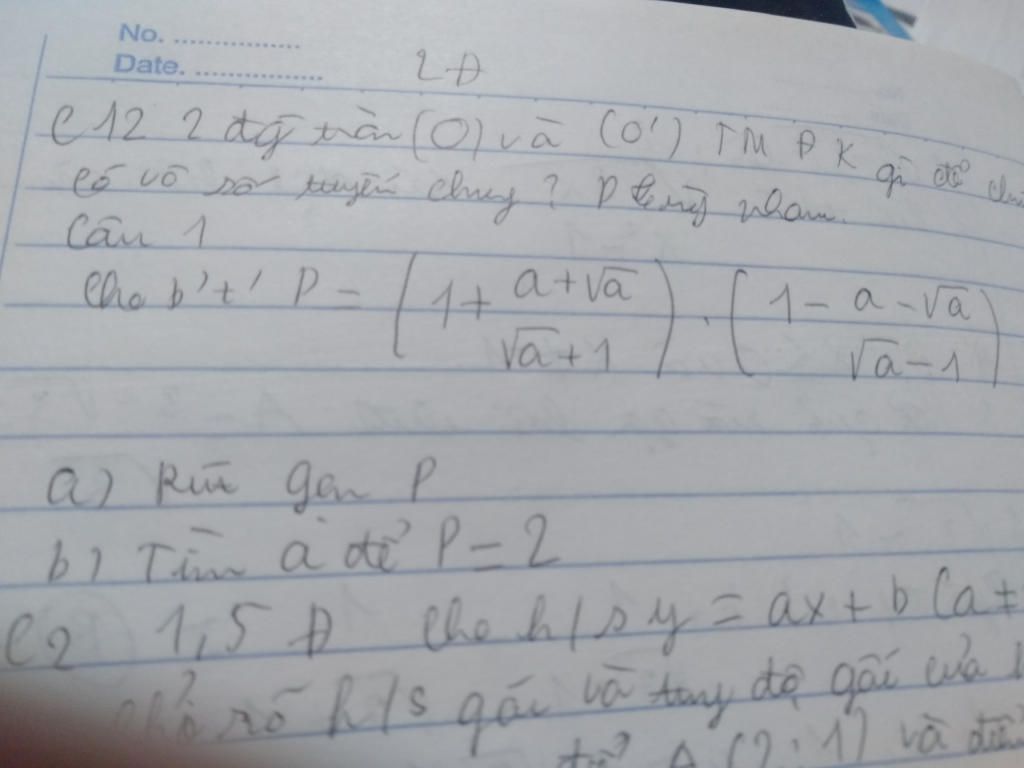 No. ....................
Date. ....................
2 Đ
C12 2 đg tròn (O) và (O') TM Đ K gì để
có vô số tuyến chung? nham.
Câu 1
Cho b't' P = (1 + a+√a / √a+1) . (1 - a-√a / √a-1)
a) Rút gọn P
b) Tìm a để P = 2
C2 1,5 Đ Cho h/s y = ax + b (a ≠
rõ h/s gốc và tung độ gốc của
để A (2; 1) và